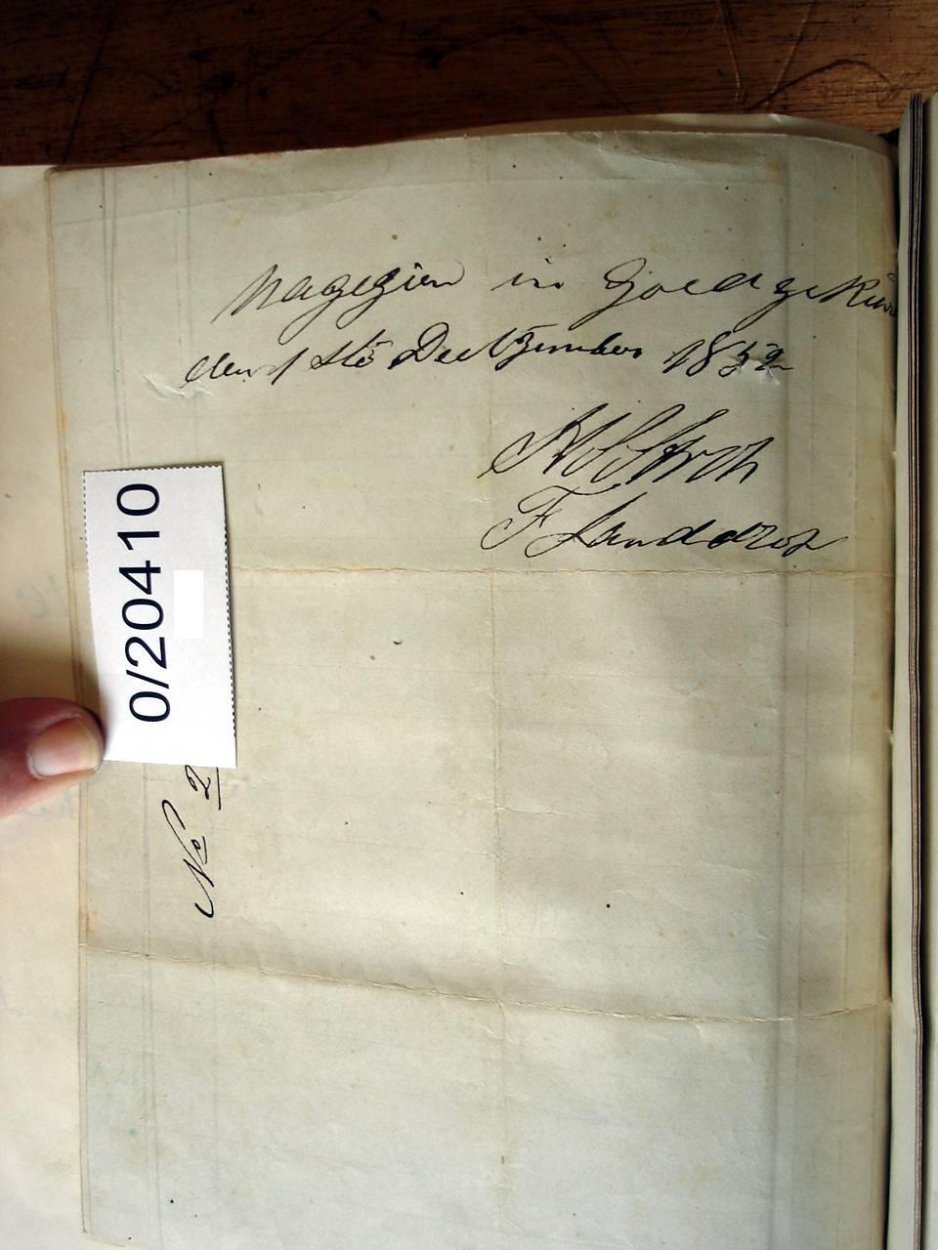 nagezien in Goedgekeur
den 1 ste Decbzember 1852
F Landdros
0/20410
No 2